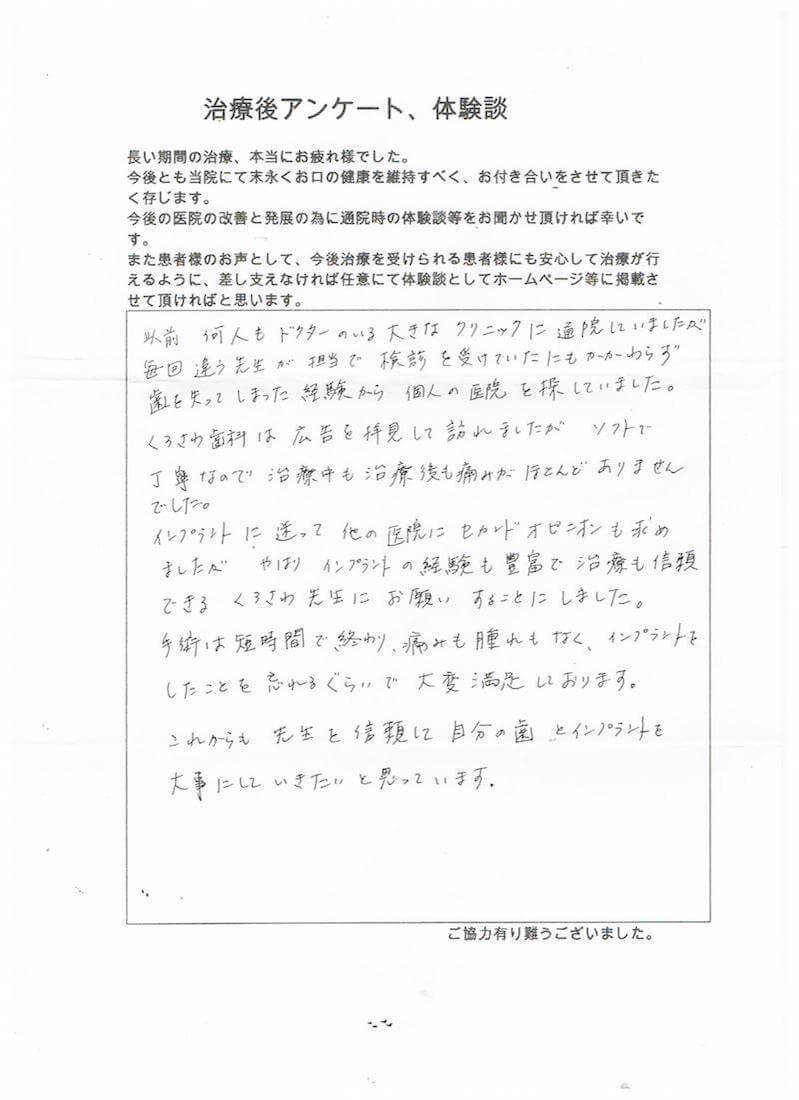 治療後アンケート、体験談
長い期間の治療、本当にお疲れ様でした。
今後とも当院にて末永くお口の健康を維持すべく、お付き合いをさせて頂きた
く存じます。
今後の医院の改善と発展の為に通院時の体験談等をお聞かせ頂ければ幸いで
す。
また患者様のお声として、今後治療を受けられる患者様にも安心して治療が行
えるように、差し支えなければ任意にて体験談としてホームページ等に掲載さ
せて頂ければと思います。
以前 何人もドクターのいる大きなクリニックに通院していましたが
毎回違う先生が担当で検診を受けていたにもかかわらず
歯を失ってしまった経験から 個人の医院を探していました。
くろさわ歯科は広告を拝見して訪れましたが ソフトで
丁寧なので治療中も治療後も痛みがほとんどありません
でした。
インプラントに迷って他の医院にセカンドオピニオンも求め
ましたが やはり インプラントの経験も豊富で治療も信頼
できる くろさわ先生に お願い することにしました。
手術は短時間で終わり、痛みも腫れもなく、インプラントを
したことを忘れるぐらいで 大変満足しております。
これからも 先生を信頼して 自分の歯とインプラントを
大事にしていきたいと思っています.
ご協力有り難うございました。